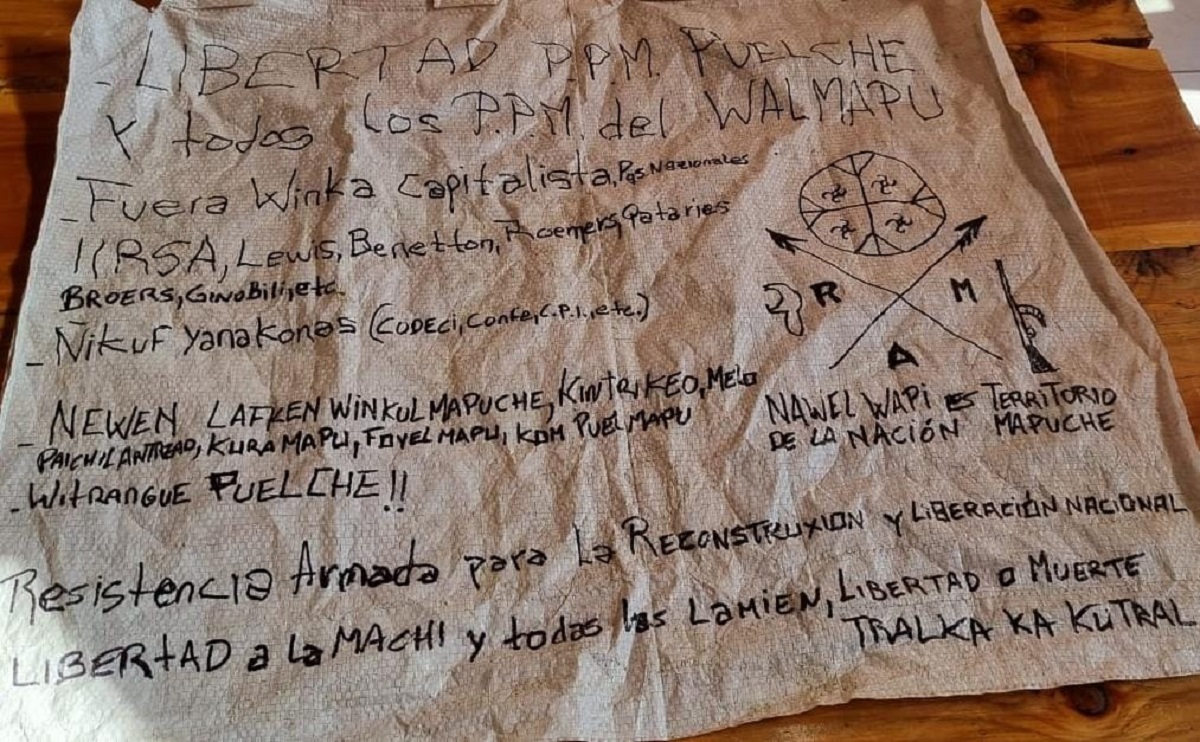 - LIBERTAD P.P.M. PUELCHE
Y todos los P.P.M. del WALMAPU
- Fuera Winka Capitalista, Pqs Nazionales
IIRSA, Lewis, Benetton, Roemers, Qataries
BROERS, GinoBili, etc.
- Ñikuf Yanakonas (CODECI, Confe, C.P.I., etc.)
- NEWEN LAFKEN WINKUL MAPUCHE, KINTRIKEO, Melo
PAICHIL ANTREAO, KURA MAPU, FOYEL MAPU, KOM PUEL MAPU
- WITRANGUE PUELCHE!!
R M
A
NAWEL WAPI es TERRITORIO
DE LA NACIÓN MAPUCHE
Resistencia Armada para La RECONSTRUXION y LIBERACIÓN NACIONAL
LIBERtAD a la MACHI y todas las LAMIEN, LIBERTAD o MUERTE
TRALKA KA KUTRAL